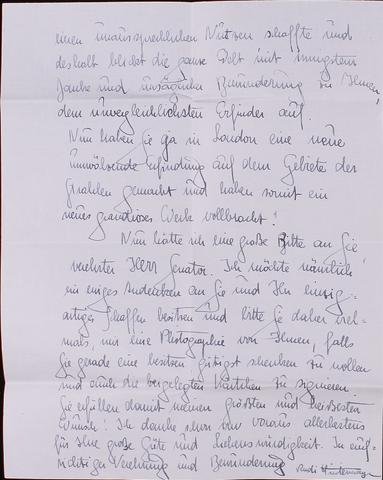 einen unaussprechlichen Nutzen schaffte und
deshalb blicket die ganze Welt mit innigstem
Danke und unsäglicher Bewunderung zu Ihnen,
dem unvergleichlichsten Erfinder auf.
Nun haben Sie ja in London eine neue
umwälzende Erfindung auf dem Gebiete der
Strahlen gemacht und haben somit ein
neues grandioses Werk vollbracht!
Nun hätte ich eine große Bitte an Sie
verehrter Herr Senator. Ich möchte nämlich
ein ewiges Andenken an Sie und Ihr einzig-
artiges Schaffen besitzen und bitte Sie daher viel-
mals, mir eine Photographie von Ihnen, falls
Sie gerade eine besitzen gütigst schenken zu wollen
und auch die beigelegten Kärtchen zu signieren
Sie erfüllen damit meinen größten und heißesten
Wunsch! Ich danke schon im voraus allerbestens
für Ihre große Güte und Liebenswürdigkeit. In auf-
richtiger Verehrung und Bewunderung Rudi